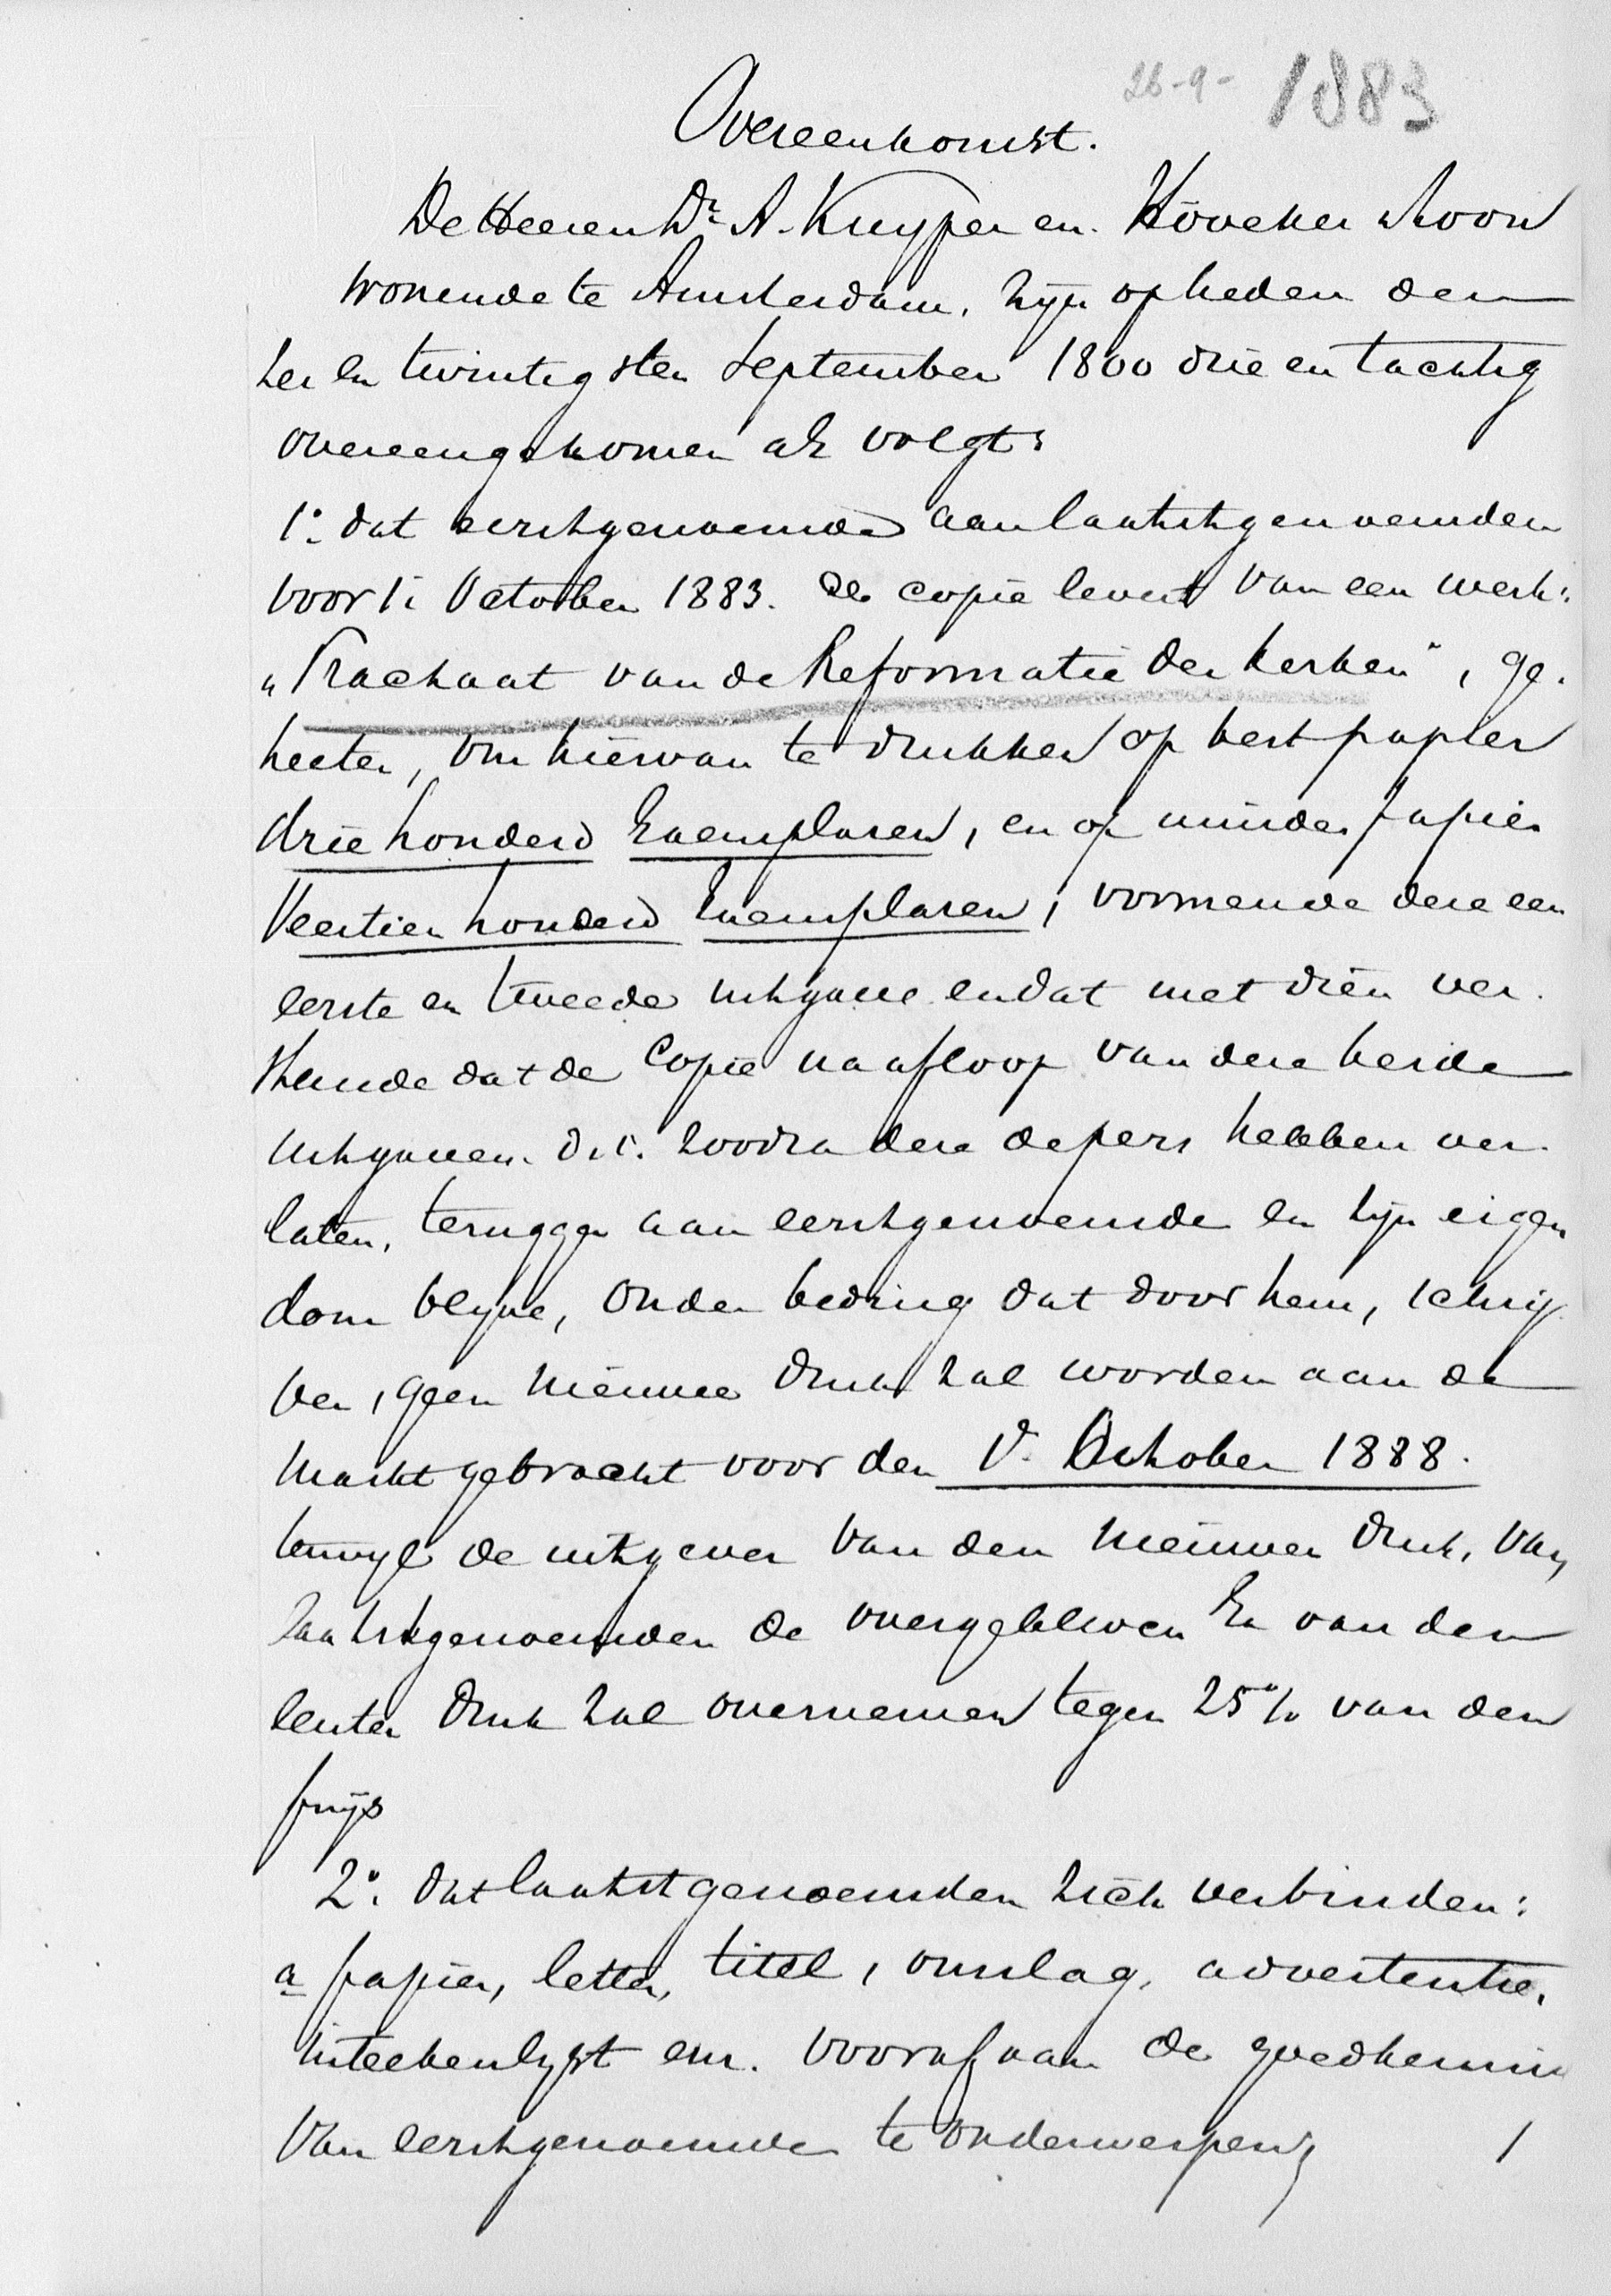 26-9- 1883
Overeenkomst.
De Heeren Dr. A. Kuyper en Höveker & Zoon
wonende te Amsterdam, zijn op heden den
zes en twintigsten September 1800 drie en tachtig
overeengekomen als volgt:
1o. dat eerstgenoemde aan laatstgenoemden
voor 1 October 1883. de copie levert van een werk:
"Tractaat van de Reformatie der kerken", ge-
heeten, om hiervan te drukken op best papier
driehonderd Exemplaren, en op minder papier
Veertien honderd Exemplaren, vormende deze een
eerste en tweede uitgave en dat met dien ver-
stande dat de Copie na afloop van deze beide
uitgaven. d.i. zoodra deze de pers hebben ver-
laten, terugga aan eerstgenoemde en zijn eigen
dom blijve, onder beding dat door hem, schrij-
ver, geen nieuwe druk zal worden aan de
markt gebracht voor den 1o. October 1888.
terwijl de uitgever van den nieuwen druk, van
laatstgenoemden de overgebleven Ex van den
eersten druk zal overnemen tegen 25% van den
prijs
2o. dat laatstgenoemden zich verbinden:
a papier, letter, titel, omslag, advertentie,
inteekenlijst enz. vooraf aan de goedkeurin
van eerstgenoemde te onderwerpen;
1